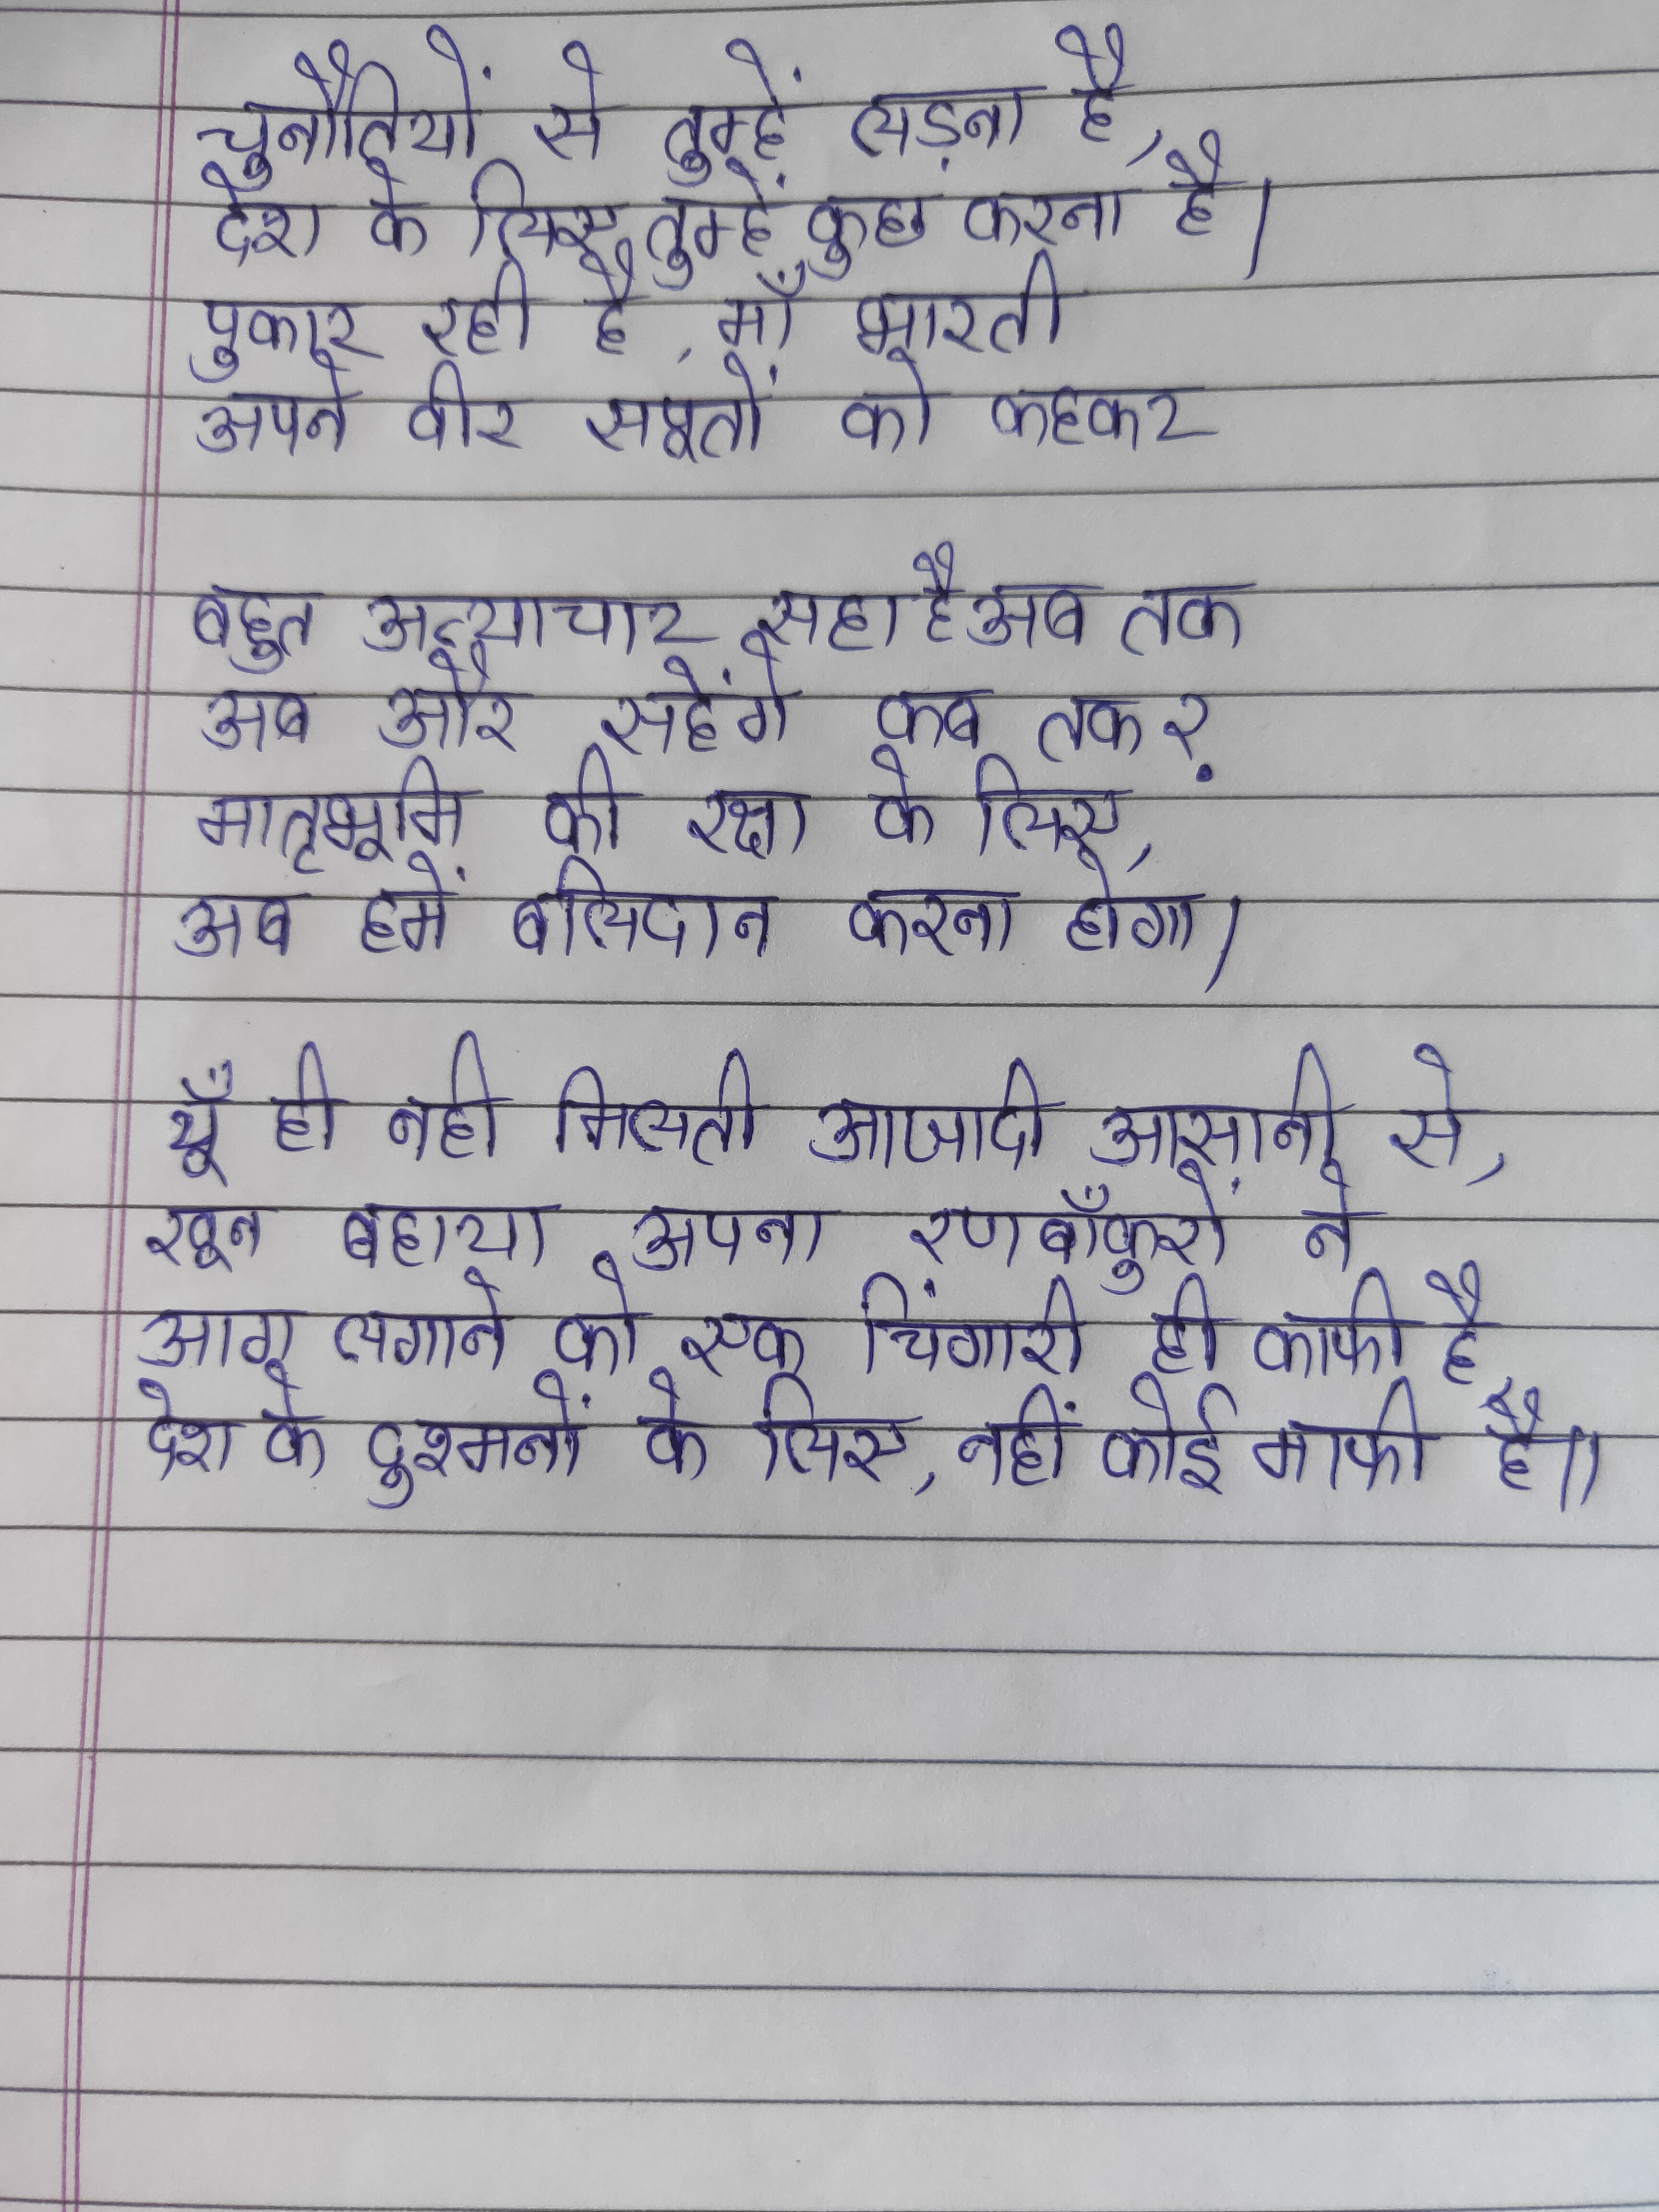 चुनौतियों से तुम्हें लड़ना है,
देश के लिए, तुम्हें कुछ करना है।
पुकार रही है, माँ भारती
अपने वीर सपूतों को कहकर
बहुत अत्याचार सहा है अब तक
अब और सहेंगे कब तक ?
मातृभूमि की रक्षा के लिए,
अब हमें बलिदान करना होगा।
यूँ ही नही मिलती आजादी आसानी से,
खून बहाया अपना रणबाँकुरों ने
आग लगाने को एक चिंगारी ही काफी है,
देश के दुश्मनों के लिए, नहीं कोई माफी है॥